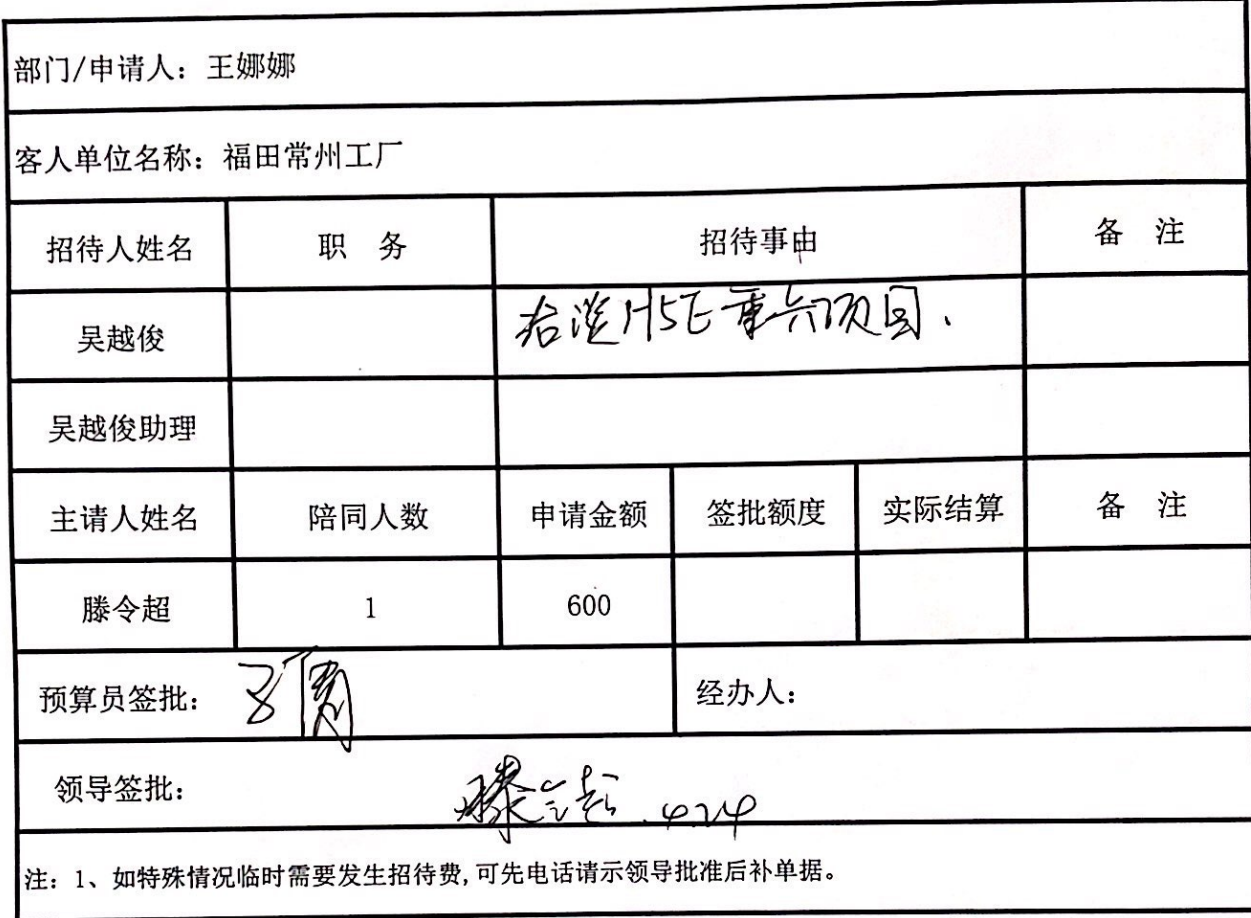 部门/申请人：王娜娜
客人单位名称：福田常州工厂
招待人姓名 职 务 招待事由 备 注
吴越俊 洽谈H5E重六项目.
吴越俊助理
主请人姓名 陪同人数 申请金额 签批额度 实际结算 备 注
滕令超 1 600
预算员签批： 经办人：
领导签批： 滕令超 .4.24
注：1、如特殊情况临时需要发生招待费,可先电话请示领导批准后补单据。